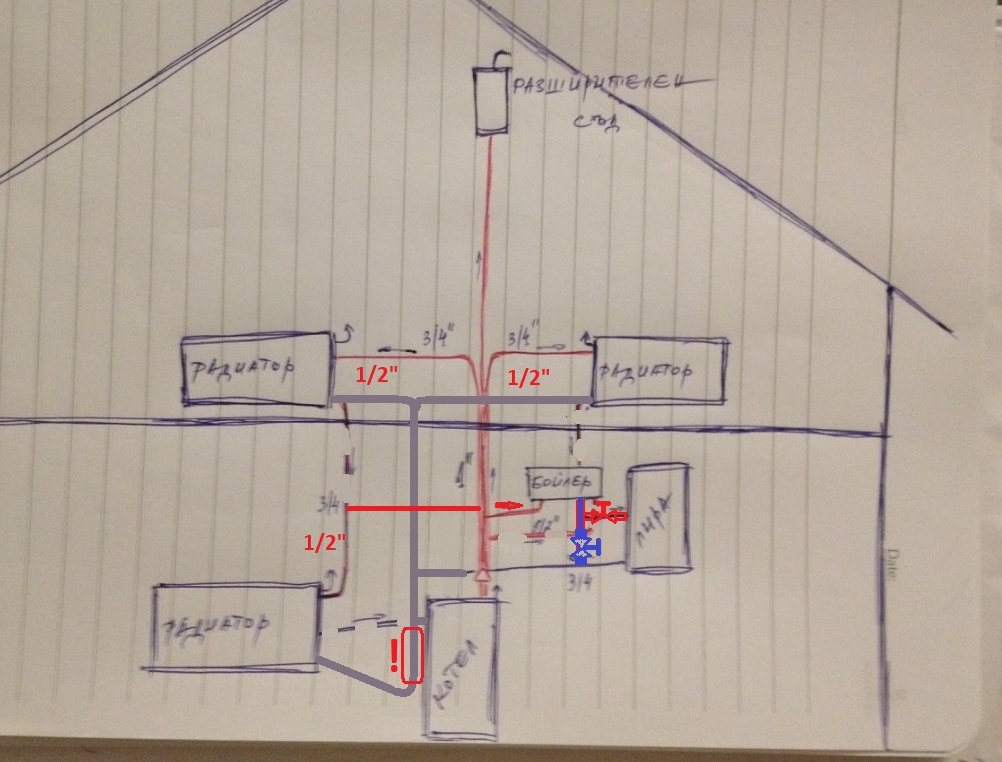 РАЗШИРИТЕЛЕН
СЪД
3/4"
3/4"
РАДИАТОР
1/2"
1/2"
РАДИАТОР
1"
БОЙЛЕР
3/4
1/2"
1/2"
ЛИРА
Date:
3/4
РАДИАТОР
!
КОТЕЛ